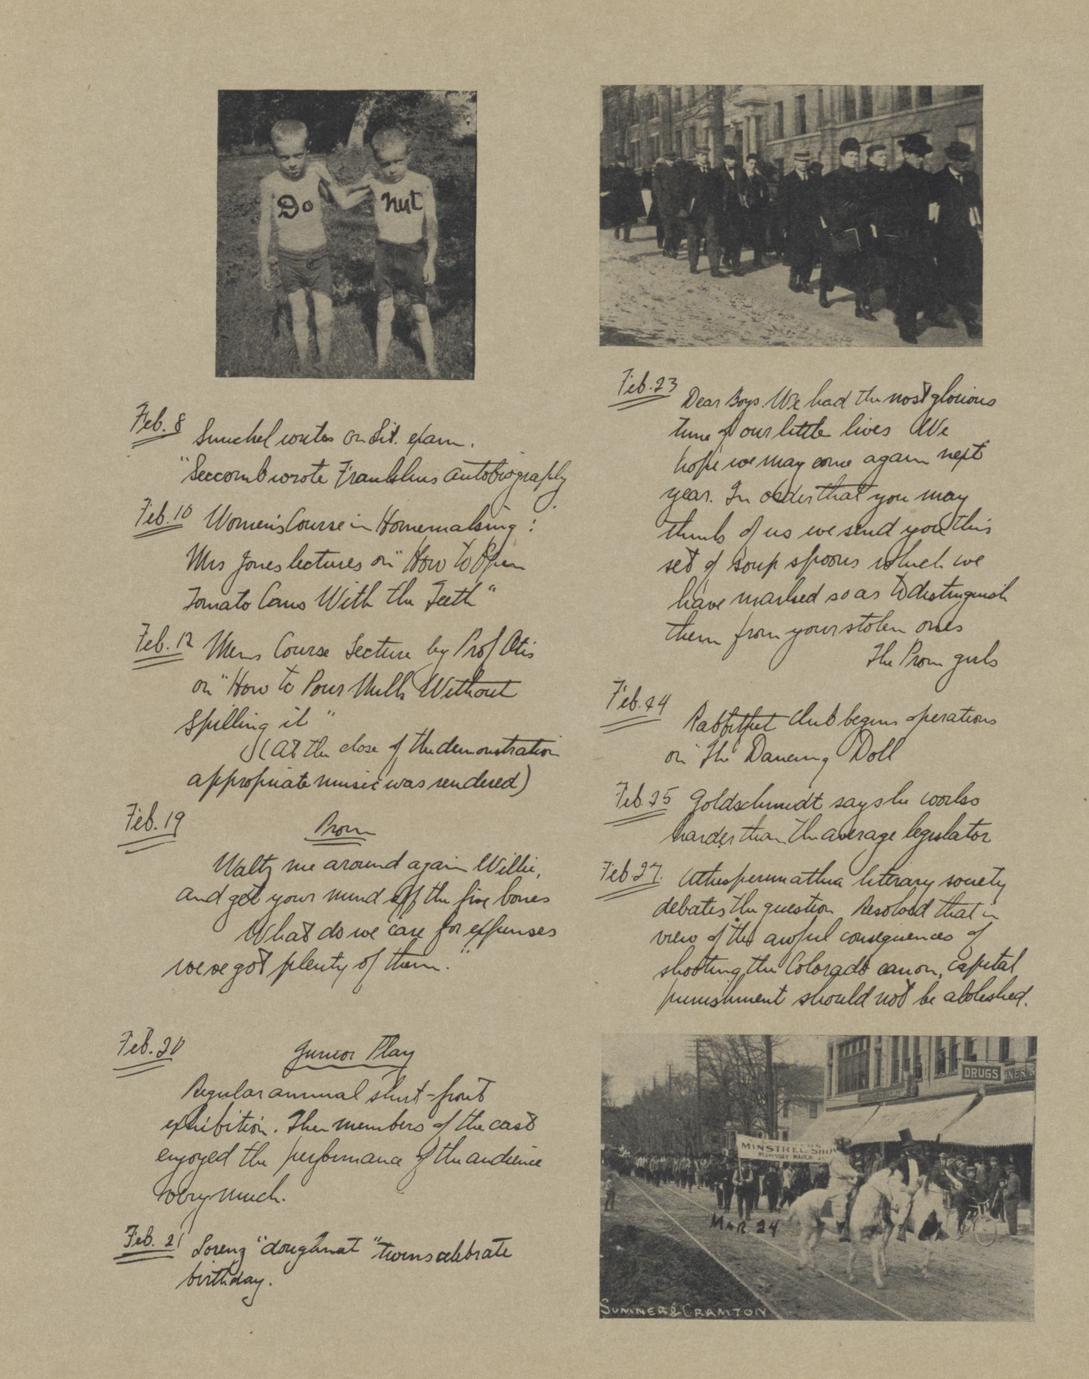 Do
nut
Feb. 8 writes on Lit. exam.
"Seccomb wrote Franklins autobiography
Feb. 10 Women's Course in Homemaking:
Mrs Jones lectures on "How to Open
Tomato Cans With the Teeth"
Feb. 12 Mens Course Lecture by Prof Otis
on "How to Pour Milk Without
Spilling it"
(At the close of the demonstration
appropriate music was rendered)
Feb. 19 Prom
Waltz me around again Willie,
and get your mind off the five bones
What do we care for expenses
weve got plenty of them."
Feb. 20 Junior Play
Regular annual shirt-front
exhibition. The members of the cast
enjoyed the performance of the audience
very much.
Feb. 21 Lorenz "doughnut" twins celebrate
birthday.
Feb. 23 Dear Boys We had the most glorious
time of our little lives We
hope we may come again next
year. In order that you may
think of us we send you this
set of soup spoons which we
have marked so as to distinguish
them from your stolen ones
The Prom girls
Feb. 24 club begins operations
on "The Dancing Doll
Feb 25 Goldschmidt says he works
harder than the average legislator
Feb 27. literary society
debates the question Resolved that in
view of the awful consequences of
shooting the Colorado canon, capital
punishment should not be abolished.
DRUGS
MINSTREL SHOW
MAR 24
SUMNER & CRAMTON